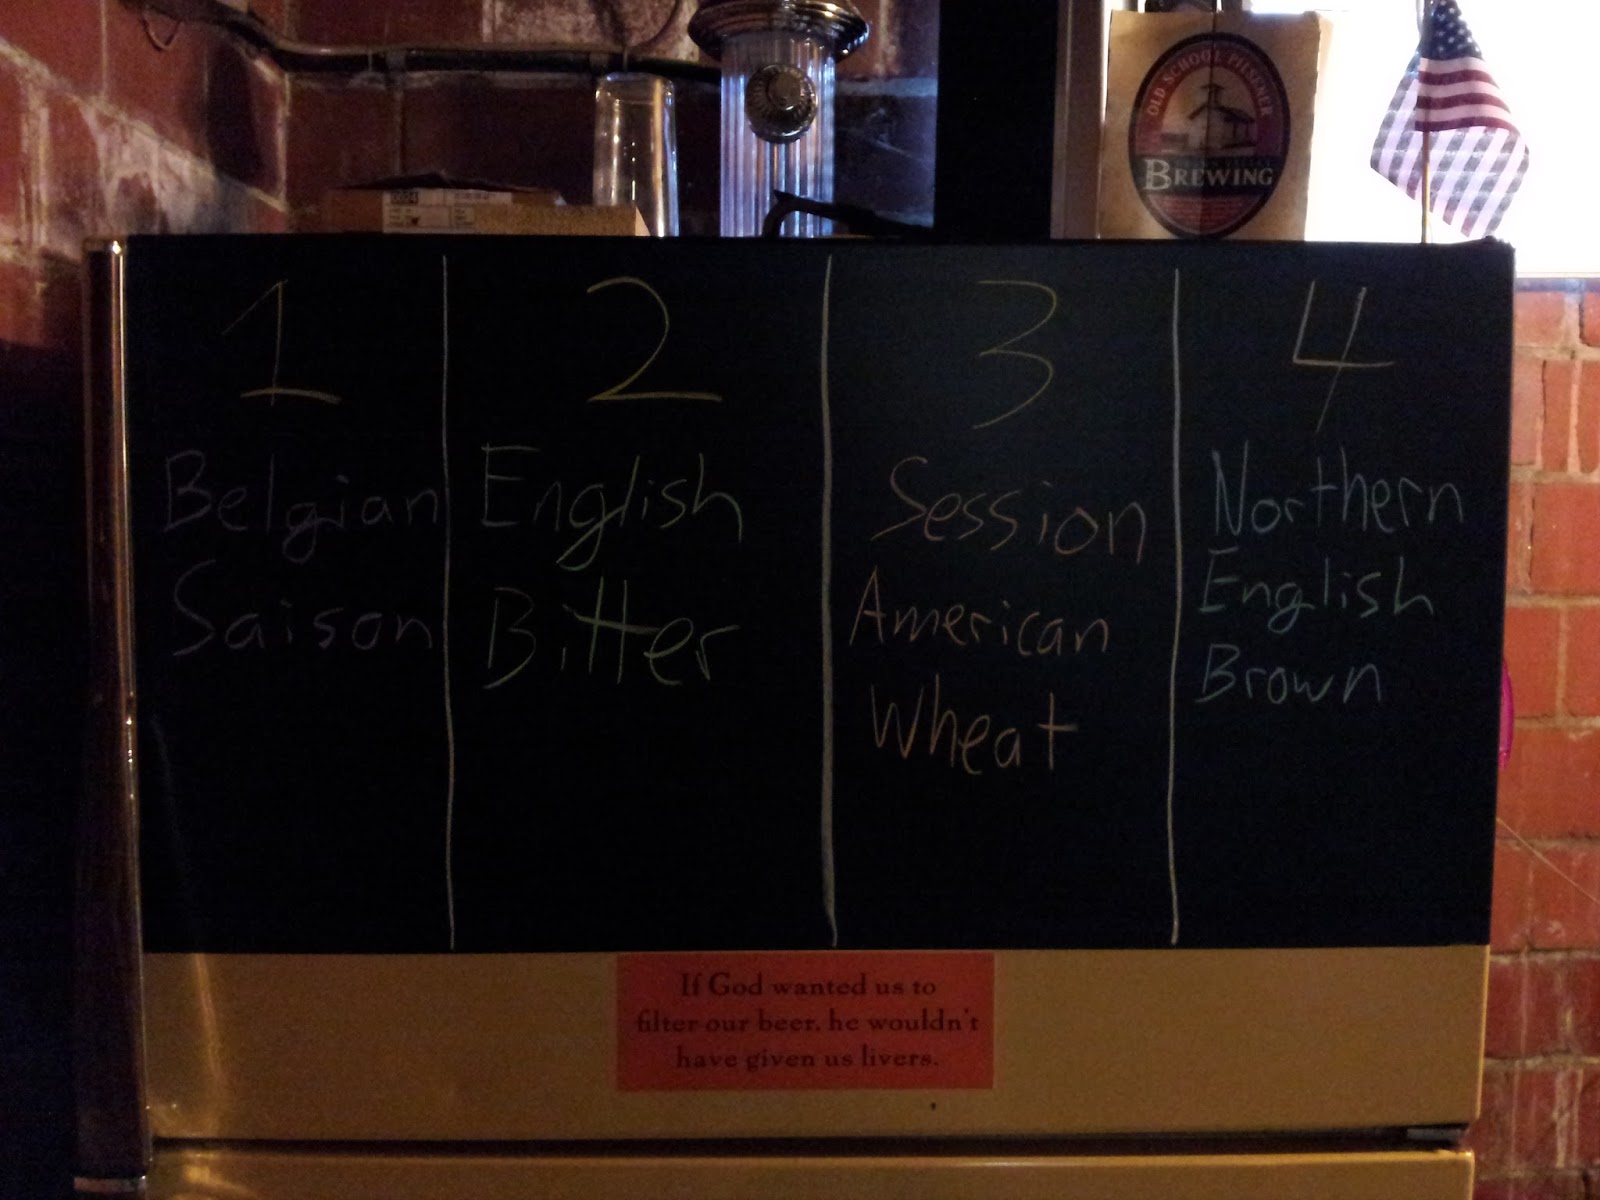 OLD SCHOOL PILSENER
BREWING
1
2
3
4
Belgian
Saison
English
Bitter
Session
American
Wheat
Northern
English
Brown
If God wanted us to
filter our beer, he wouldn't
have given us livers.